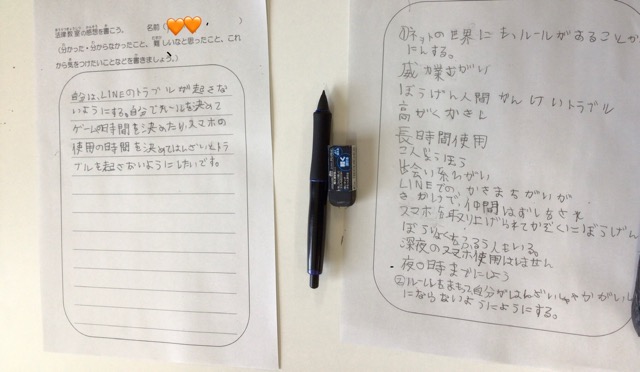 法律教室の感想を書こう。 名前( )
(分かった・分からなかったこと、難しいなと思ったこと、これ
から気をつけたいことなどを書きましょう。)
自分は、LINEのトラブルが起さない
ようにする。自分でルールを決めて
ゲームの時間を決めたり、スマホの
使用の時間を決めてはんざいやトラ
ブルを起さないようにしたいです。
①ネットの世界にもルールがあることか
にんする。
威力業むがい
ぼうげん人間かんけいトラブル
高がくかきん
長時間使用
出会い系
LINEでの、かきまちがいが
さかいで、仲間はずしをされ
スマホを取り上げられてかぞくにぼうげん
ぼうりょくをふるう人もいる。
深夜のスマホ使用はしません
夜 時までにしよう
②ルールをまもって自分がはんざいしゃやかがいし
にならないようにようにする。